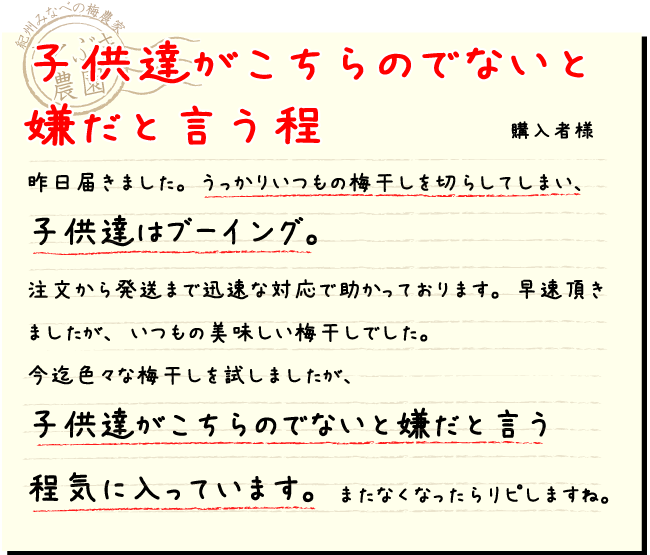 紀州みなべの梅農家
農園
子供達がこちらのでないと
嫌だと言う程
購入者様
昨日届きました。うっかりいつもの梅干しを切らしてしまい、
子供達はブーイング。
注文から発送まで迅速な対応で助かっております。早速頂き
ましたが、いつもの美味しい梅干しでした。
今迄色々な梅干しを試しましたが、
子供達がこちらのでないと嫌だと言う
程気に入っています。またなくなったらリピしますね。